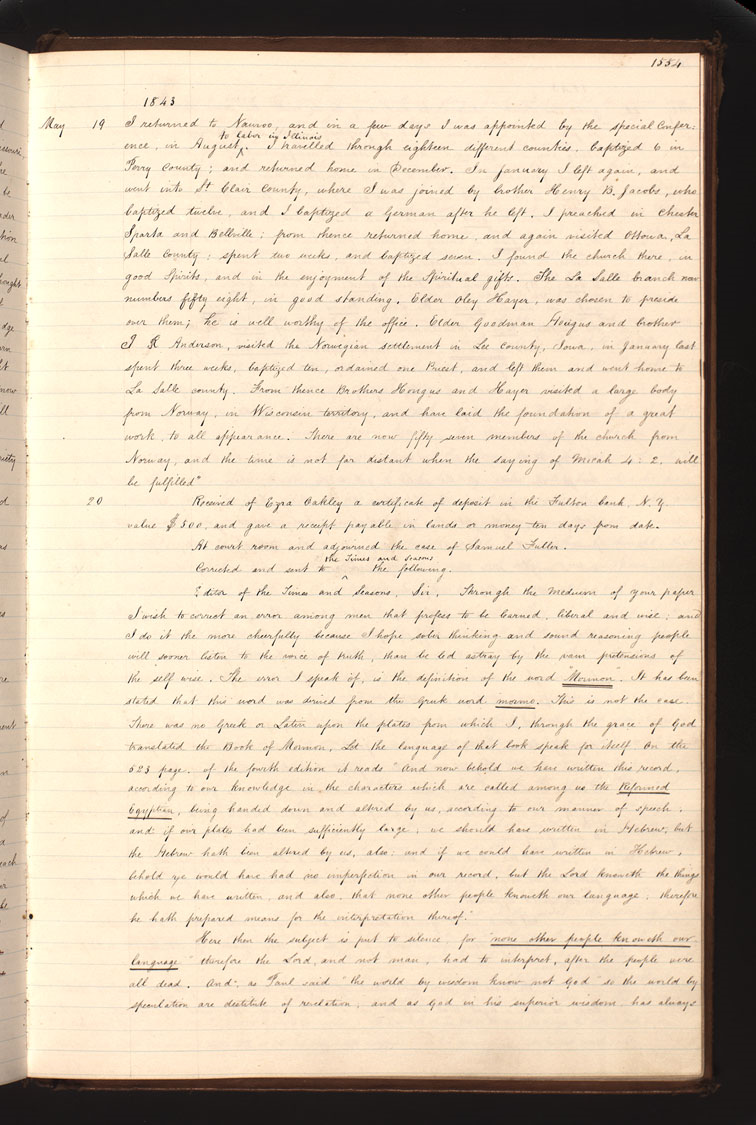 1554
1843
May 19 I returned to Nauvoo, and in a few days I was appointed by the special Confer-
to labor in Illinois
ence, in August. I travelled through eighteen different counties, baptized 6 in
Perry County; and returned home in December. In January I left again, and
went into St Clair County, where I was joined by brother Henry B. Jacobs, who
baptized twelve, and I baptized a German after he left. I preached in Chester
Sparta and Bellville; from thence returned home, and again visited Ottowa, La
Salle County; spent two weeks, and baptized seven. I found the church there, in
good Spirits, and in the enjoyment of the Spiritual gifts. The La Salle branch now
numbers fifty eight, in good standing. Elder Oley Hayer, was chosen to preside
over them; he is well worthy of the office. Elder Goodman Hougus and brother
J R Anderson, visited the Norwegian settlement in Lee County, Iowa, in January last
spent three weeks, baptized ten, ordained one Priest, and left them and went home to
La Salle county. From thence Brothers Hougus and Hayer visited a large body
from Norway, in Wisconsin territory, and have laid the foundation of a great
work, to all appearance. There are now fifty seven members of the church from
Norway, and the time is not far distant when the saying of Micah 4: 2, will
be fulfilled"
20 Received of Ezra Oakley a certificate of deposit in the Fulton bank, N. Y.
value $500, and gave a receipt payable in lands or money ten days from date.
At court room and adjourned the case of Samuel Fuller.
the Times and Seasons
Corrected and sent to the following.
Editor of the Times and Seasons, Sir, Through the medium of your paper
I wish to correct an error among men that profess to be learned, liberal and wise; and
I do it the more cheerfully because I hope sober thinking and sound reasoning people
will sooner listen to the voice of truth, than be led astray by the vain pretensions of
the self wise. The error I speak of, is the definition of the word "Mormon". It has been
stated that this word was derived from the Greek word mormo. This is not the case.
There was no Greek or Latin upon the plates from which I, through the grace of God
translated the Book of Mormon. Let the language of that book speak for itself. On the
523 page, of the fourth edition it reads "And now behold we have written this record,
according to our knowledge in the characters which are called among us the Reformed
Egyptian, being handed down and altered by us, according to our manner of speech;
and if our plates had been sufficiently large, we should have written in Hebrew; but
the Hebrew hath been altered by us, also; and if we could have written in Hebrew,
behold ye would have had no imperfection in our record, but the Lord knoweth the things
which we have written, and also, that none other people knoweth our language; therefore
he hath prepared means for the interpretation thereof."
Here then the subject is put to silence, for "none other people knoweth our
language" therefore the Lord, and not man, had to interpret, after the people were
all dead. And, as Paul said "the world by wisdom know not God" so the world by
speculation are destitute of revelation, and as God in his superior wisdom, has always